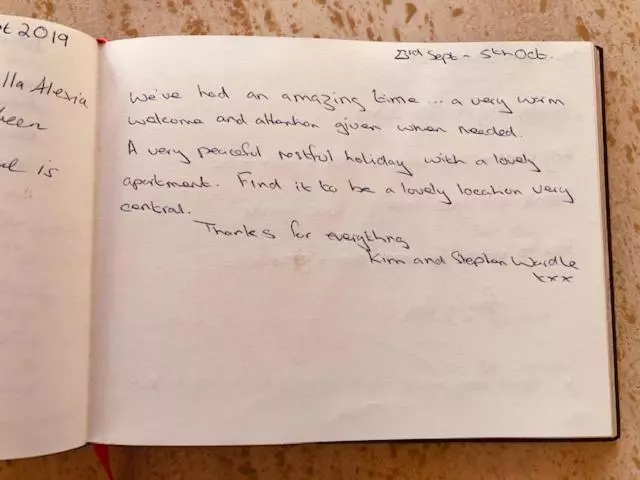 pt 2019
lla Alesia
been
is
23rd Sept - 5th Oct.
We've had an amazing time... a very warm
welcome and attention given when needed.
A very peaceful restful holiday with a lovely
apartment. Find it to be a lovely location very
central.
Thanks for everything
Kim and Stephen Wardle
xxx